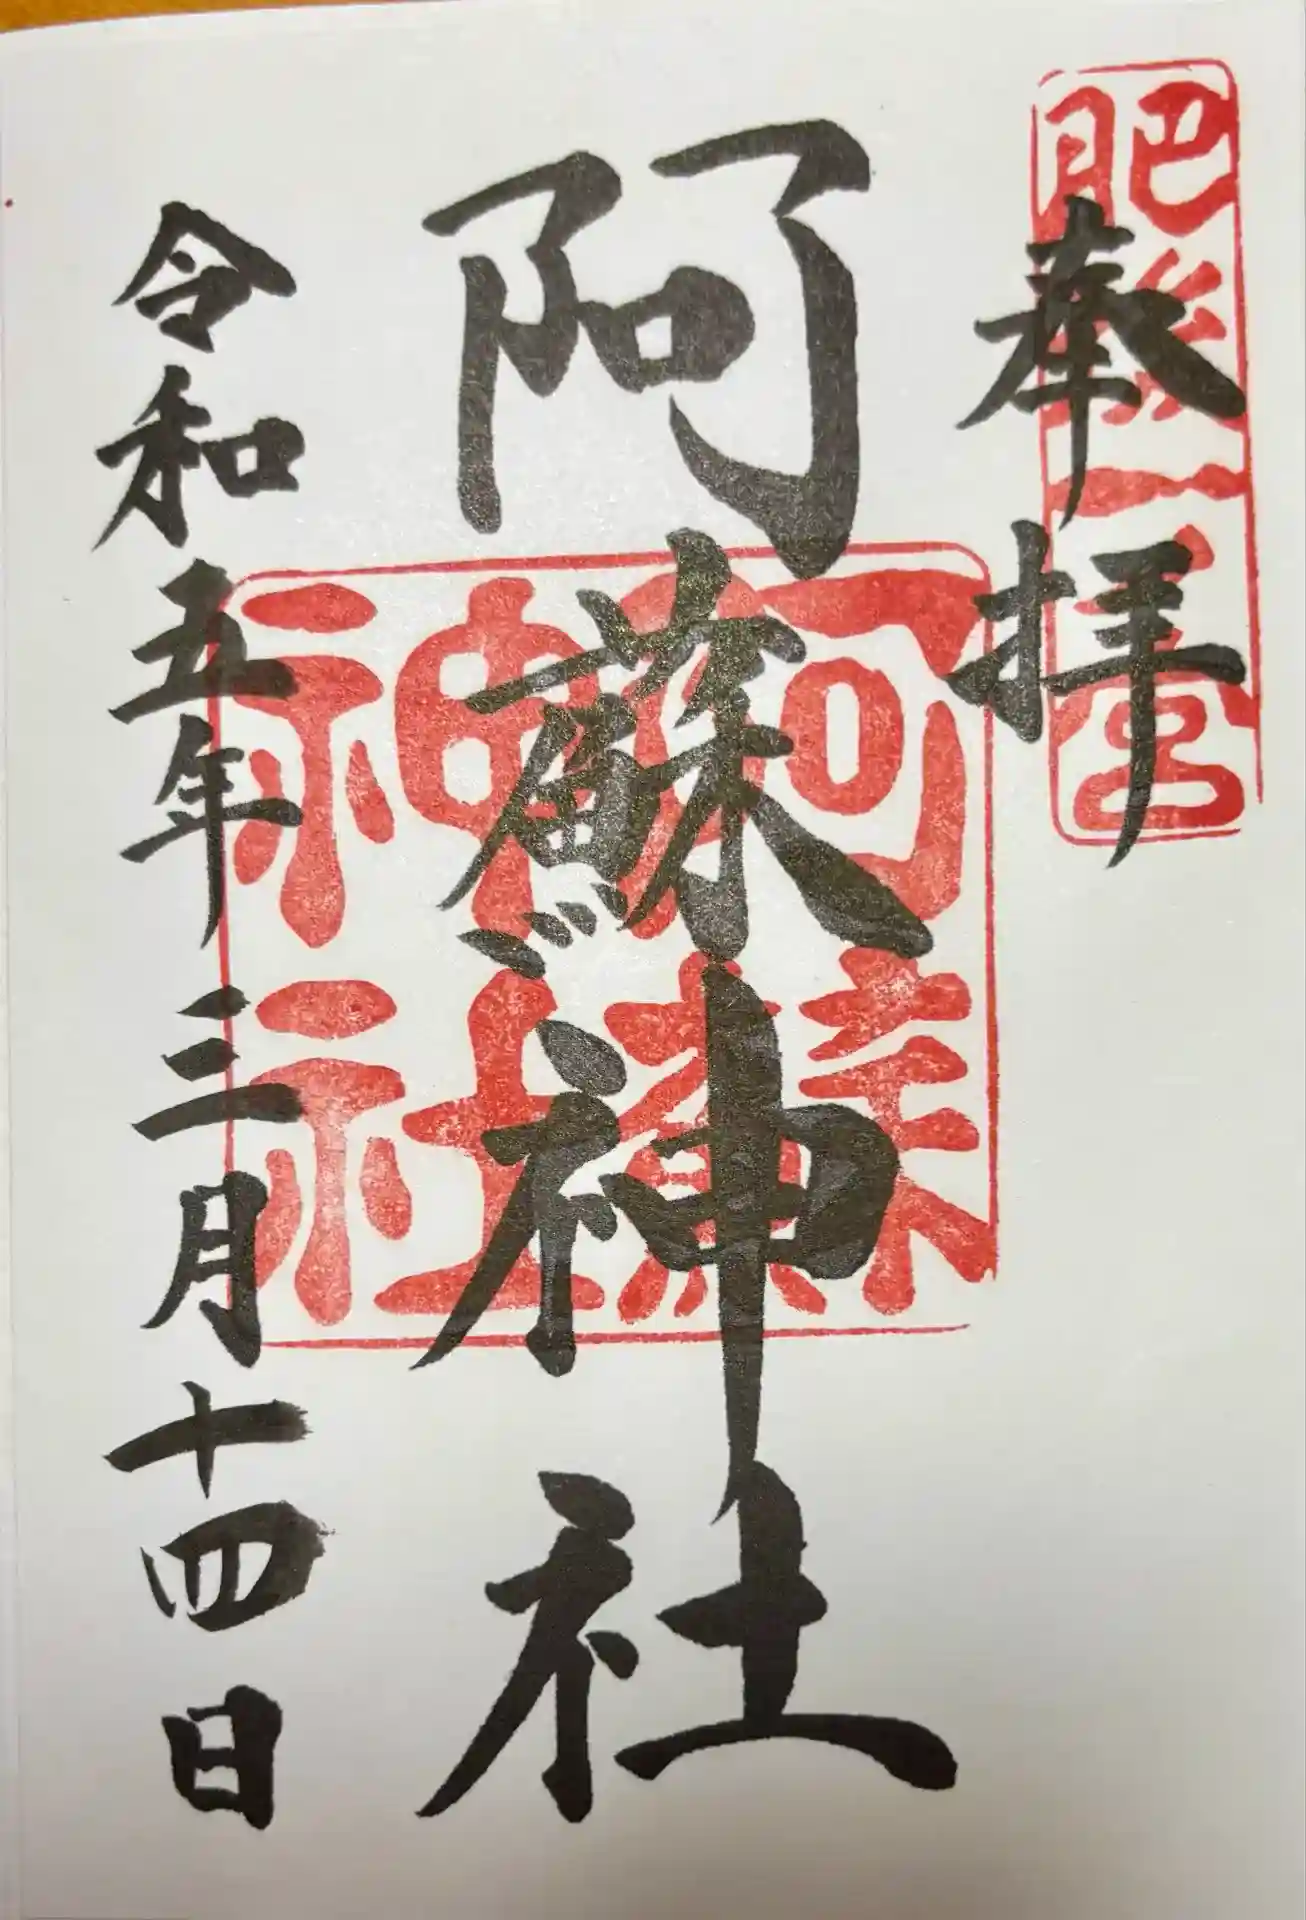 肥後一之宮
奉拝
阿蘇神社
阿蘇神社
令和五年三月十四日